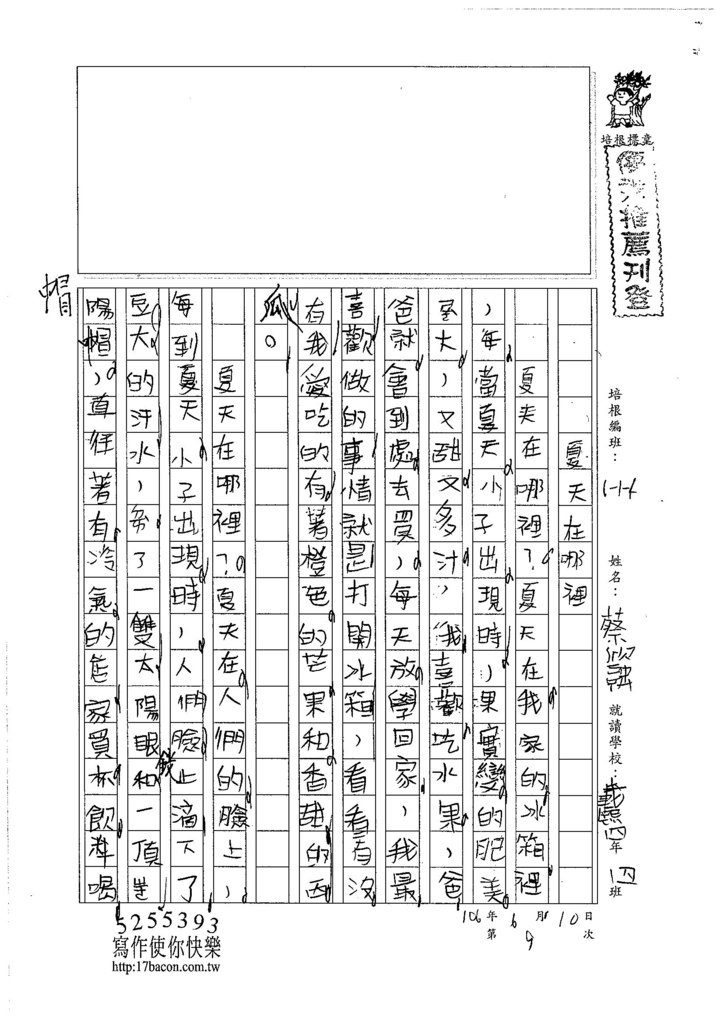 培根標章
優波推薦刊登
培根編班：
1-1-4
姓名：
就讀學校：
四年
四班
106年6月10日
第9次
夏天在哪裡
夏天在哪裡？夏天在我家的冰箱裡
，每當夏天小子出現時，果實變的肥美
至大，又甜又多汁，我喜歡吃水果，爸
爸就會到處去買，每天放學回家，我最
喜歡做的事情就是打開冰箱，看看有沒
有我愛吃的有著橙色的芒果和香甜的西
瓜。
夏天在哪裡？夏天在人們的臉上，
每到夏天小子出現時，人們臉上滴下了
豆大的汗水，旁了一雙太陽眼鏡和一頂
陽帽，直往著有冷氣的店家買杯飲料喝
帽
5255393
寫作使你快樂
http:17bacon.com.tw